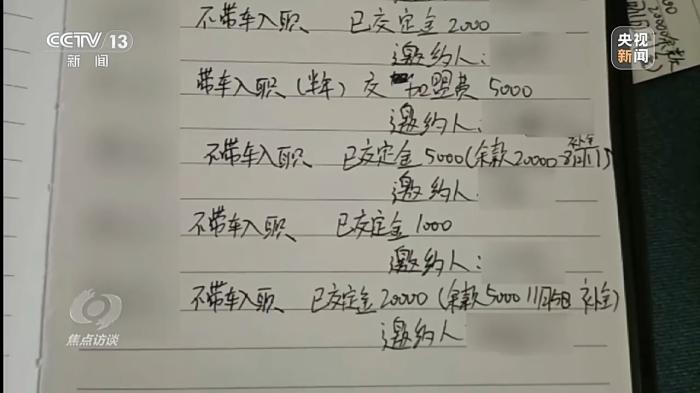 CCTV 13
新闻
央视
新闻
不带车入职、 已交定金 2000
邀约人:
带车入职 (半年) 交 加盟费 5000
邀约人:
不带车入职、 已交定金 5000 (余款 20000 补全
邀约人
不带车入职、 已交定金 1000
邀约人:
不带车入职、 已交定金 20000 (余款 5000 11月5日 补全)
邀约人
焦点访谈